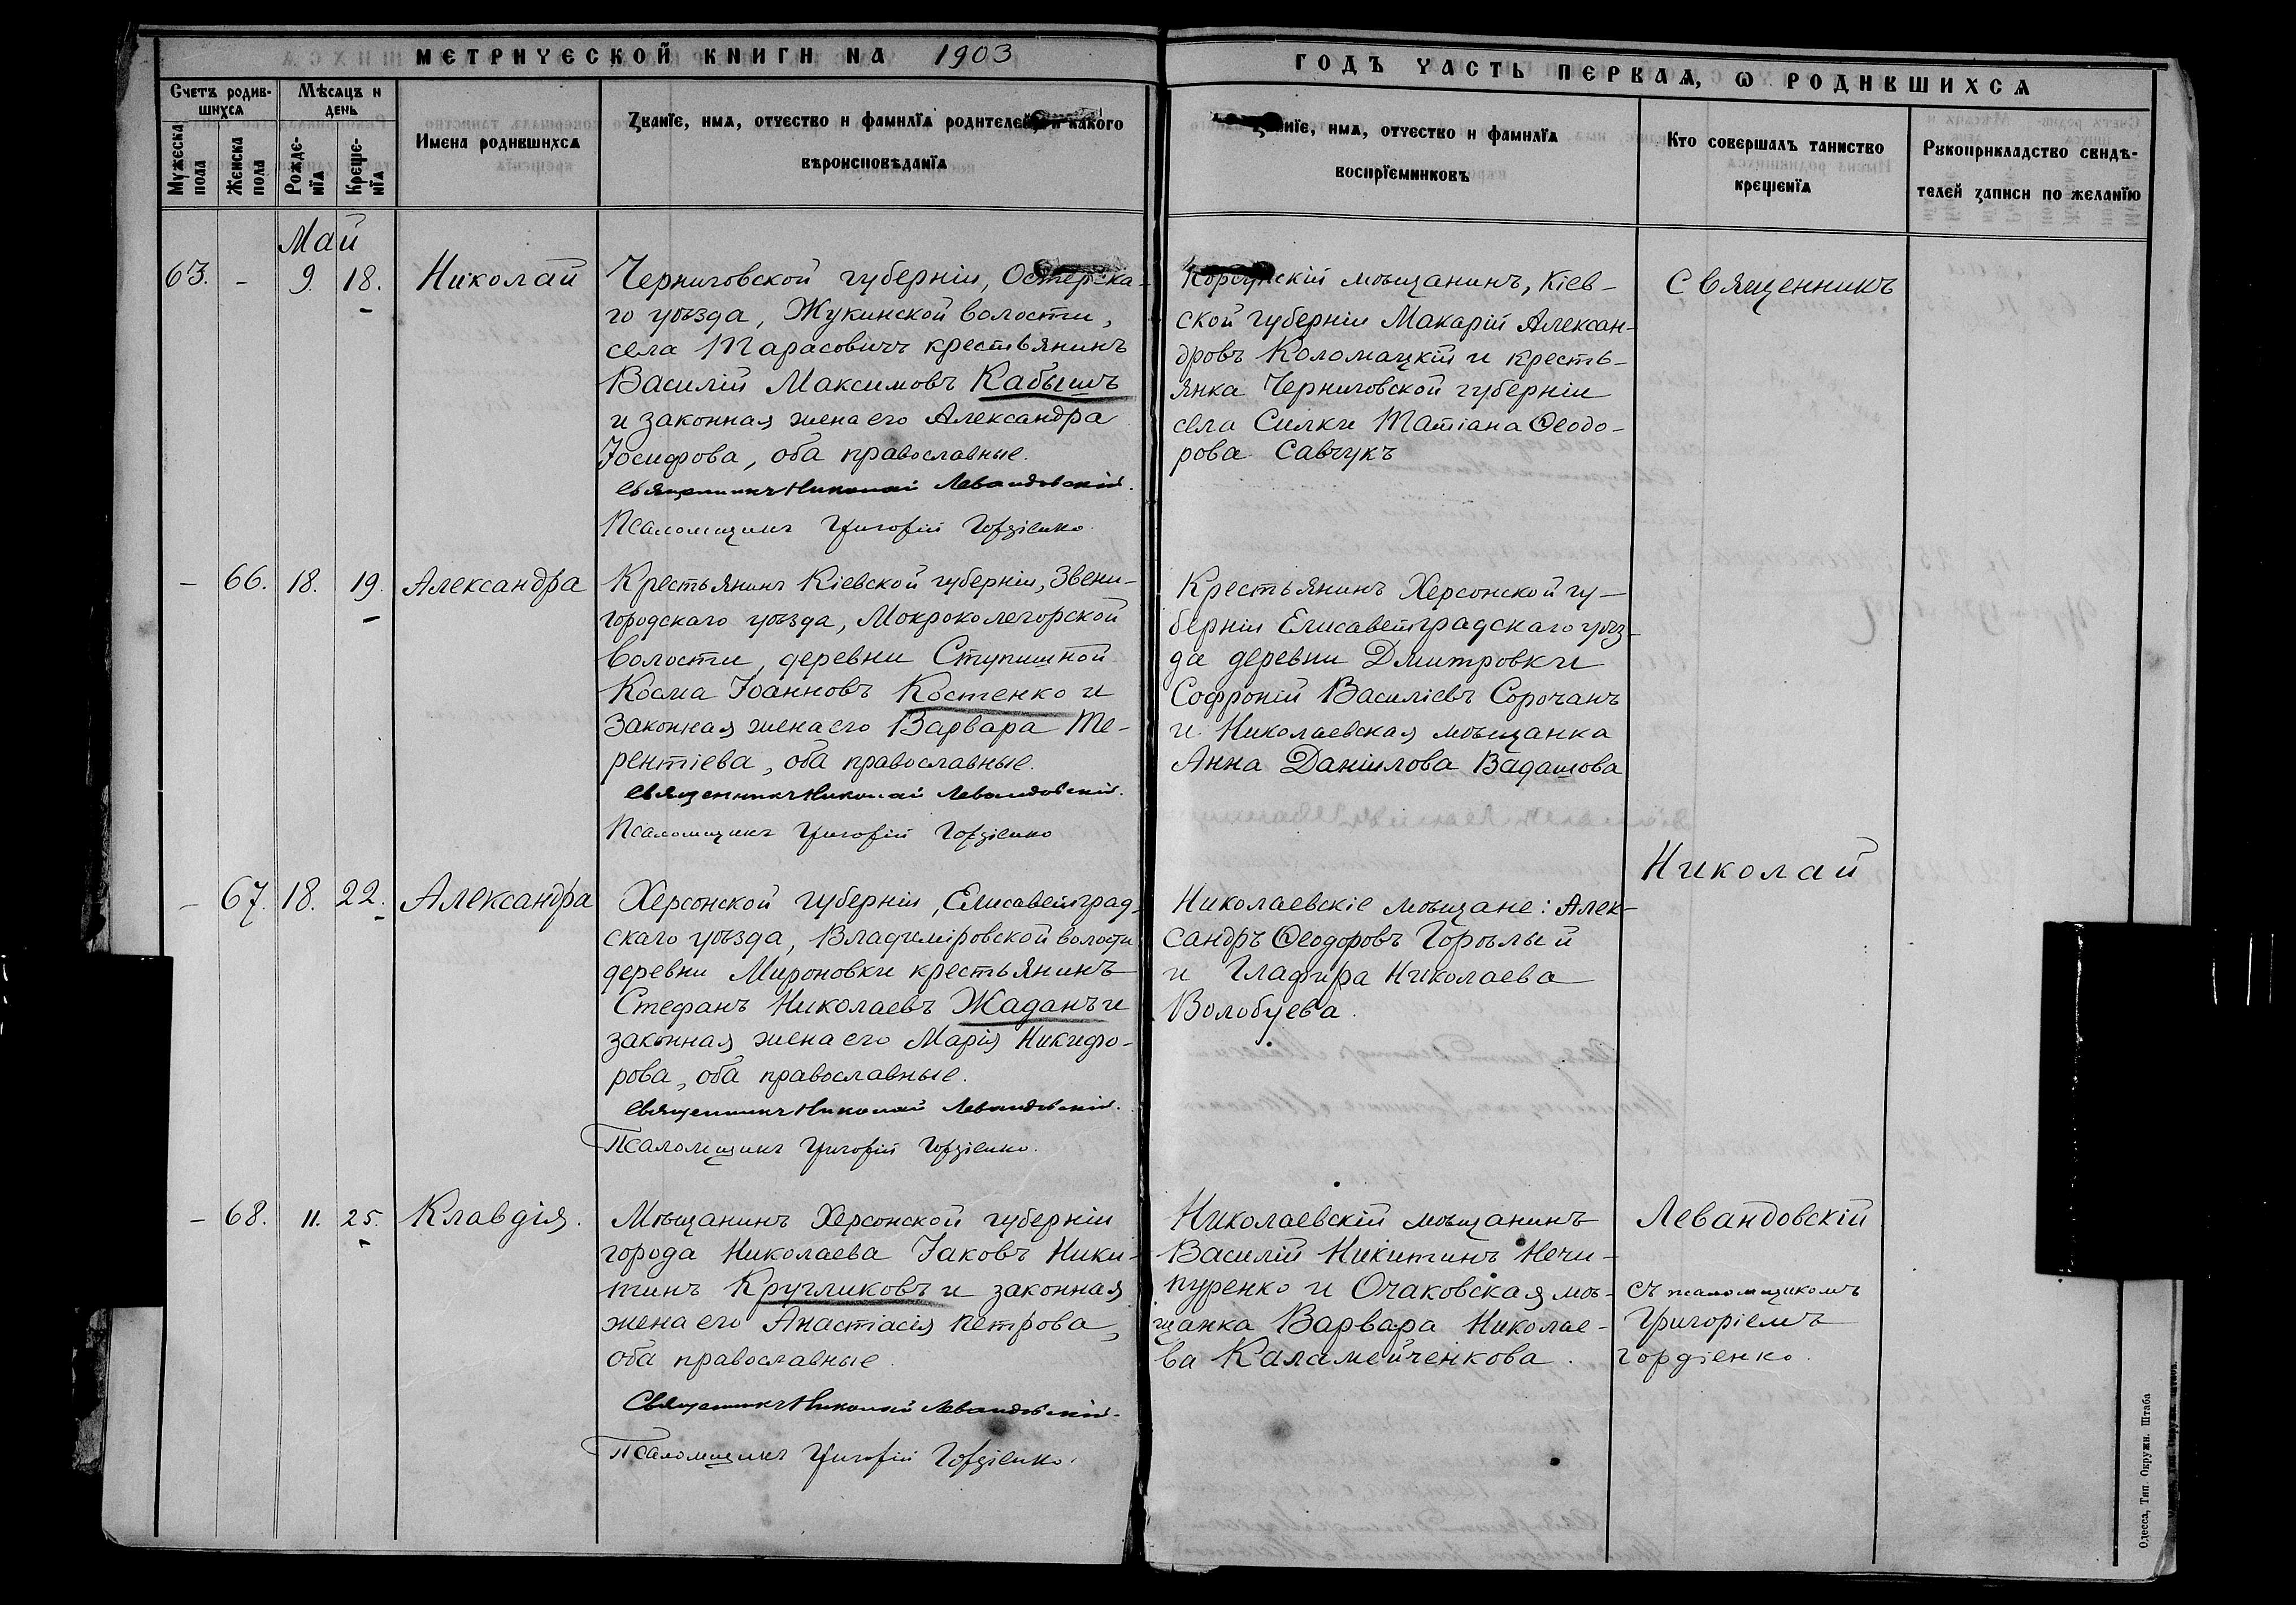 МЕТРИЧЕСКОЙ КНИГИ НА 1903
ГОДЪ ЧАСТЬ ПЕРВАЯ, Ѡ РОДИВШИХСЯ
Счетъ родив-
шихся
Мѣсяцъ и
день
Мужеска
пола
Женска
пола
Рожде-
нія
Креще-
нія
Имена родившихся
Званїе, имя, отчество и фамилїя родителей, и какого
вѣроисповѣданїя
Званїе, имя, отчество и фамилїя
воспрїемниковъ
Кто совершалъ таинство
крещенїя
Рукоприкладство свидѣ-
телей записи по желанїю
Май
63. - 9. 18. Николай
Черниговской губерніи, Остерска-
го уѣзда, Жукинской волости,
села Тарасовичъ крестьянинъ
Василій Максимовъ Кабышъ
и законная жена его Александра
Іосифова, оба православные.
Священникъ Николай Левандовскій.
Псаломщикъ Григорій Гордіенко.
Корсунскій мѣщанинъ, Кіев-
ской губерніи Макарій Алексан-
дровъ Коломацкій и кресть-
янка Черниговской губерніи
села Силки Татіана Ѳеодо-
рова Савчукъ
Священникъ
- 66. 18. 19. Александра
Крестьянинъ Кіевской губерніи, Звени-
городскаго уѣзда, Мокрокалегорской
волости, деревни Ступишной
Косма Іоанновъ Костенко и
законная жена его Варвара Те-
рентіева, оба православные.
Священникъ Николай Левандовскій.
Псаломщикъ Григорій Гордіенко
Крестьянинъ Херсонской гу-
берніи Елисаветградскаго уѣз-
да деревни Дмитровки
Софроній Василіевъ Сорочанъ
и Николаевская мѣщанка
Анна Даніилова Вадашова
Николай
- 67. 18. 22. Александра
Херсонской губерніи, Елисаветград-
скаго уѣзда, Владиміровской волости
деревни Мироновки крестьянинъ
Стефанъ Николаевъ Жаданъ и
законная жена его Марія Никифо-
рова, оба православные.
Священникъ Николай Левандовскій.
Псаломщикъ Григорій Гордіенко.
Николаевскіе мѣщане: Алек-
сандръ Ѳеодоровъ Горѣлый
и Глафира Николаева
Волобуева.
- 68. 11. 25. Клавдія.
Мѣщанинъ Херсонской губерніи
города Николаева Іаковъ Ники-
тинъ Кругликовъ и законная
жена его Анастасія Петрова,
оба православные.
Священникъ Николай Левандовскій.
Псаломщикъ Григорій Гордіенко.
Николаевскій мѣщанинъ
Василій Никитинъ Нечи-
пуренко и Очаковская мѣ-
щанка Варвара Николае-
ва Каламейченкова.
Левандовскій
съ псаломщикомъ
Григоріемъ
Гордіенко.
Одесса, Тип. Окружн. Штаба